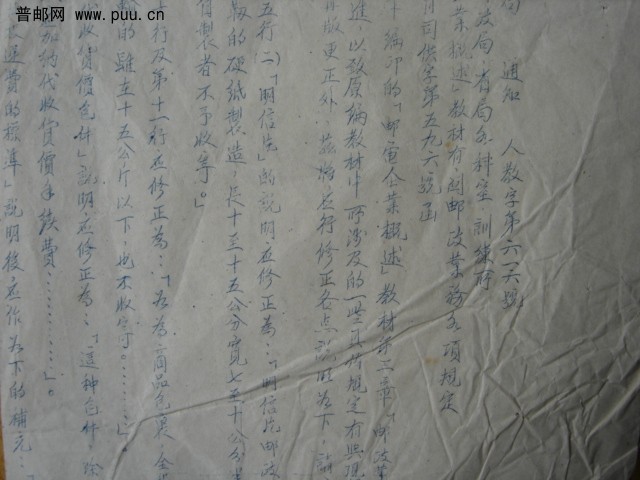 普邮网 www.puu.cn
局 通知 人教字第六一六號
政局、省局各科室、訓練所
業概述」教材有關邮政業務各項規定
司供字第五九六號函
編印的「邮電企業概述」教材第二章「邮政業
進，以致原編教材中所涉及的一些具体規定有與現
版更正外，茲將应行修正各点說明为下，請
五行 (二)「明信片」的說明，应修正為：「明信片邮政
的硬紙製造，长十至十五公分寬七至十公分
製者不予收寄」。
行及第十一行应修正為：「若为商品包裹，全
的雖在十五公斤以下，也不收寄。………」。
收貨價包件」說明，应修正為：「這种包件，除
加納代收貨價手續費…………」。
運費的標準」說明後应作为下的補充：「